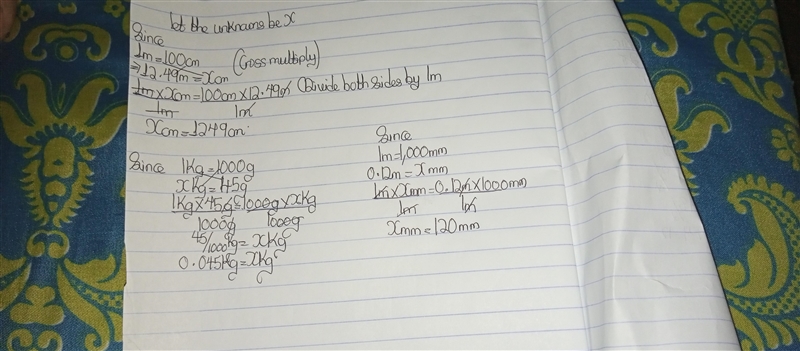 let the unknowns be x
Since
1m=100cm (Cross multiply)
⇒12.49m=xcm
1m×xcm=100cm×12.49m (Divide both sides by 1m
1m 1m
xcm=1249cm.
Since 1Kg=1000g
xKg=45g
1Kg×45g=1000g×xKg
1000g 1000g
45/1000kg=xKg
0.045Kg=xKg
Since
1m=1,000mm
0.12m=xmm
1m×xmm=0.12m×1000mm
1m 1m
xmm=120mm